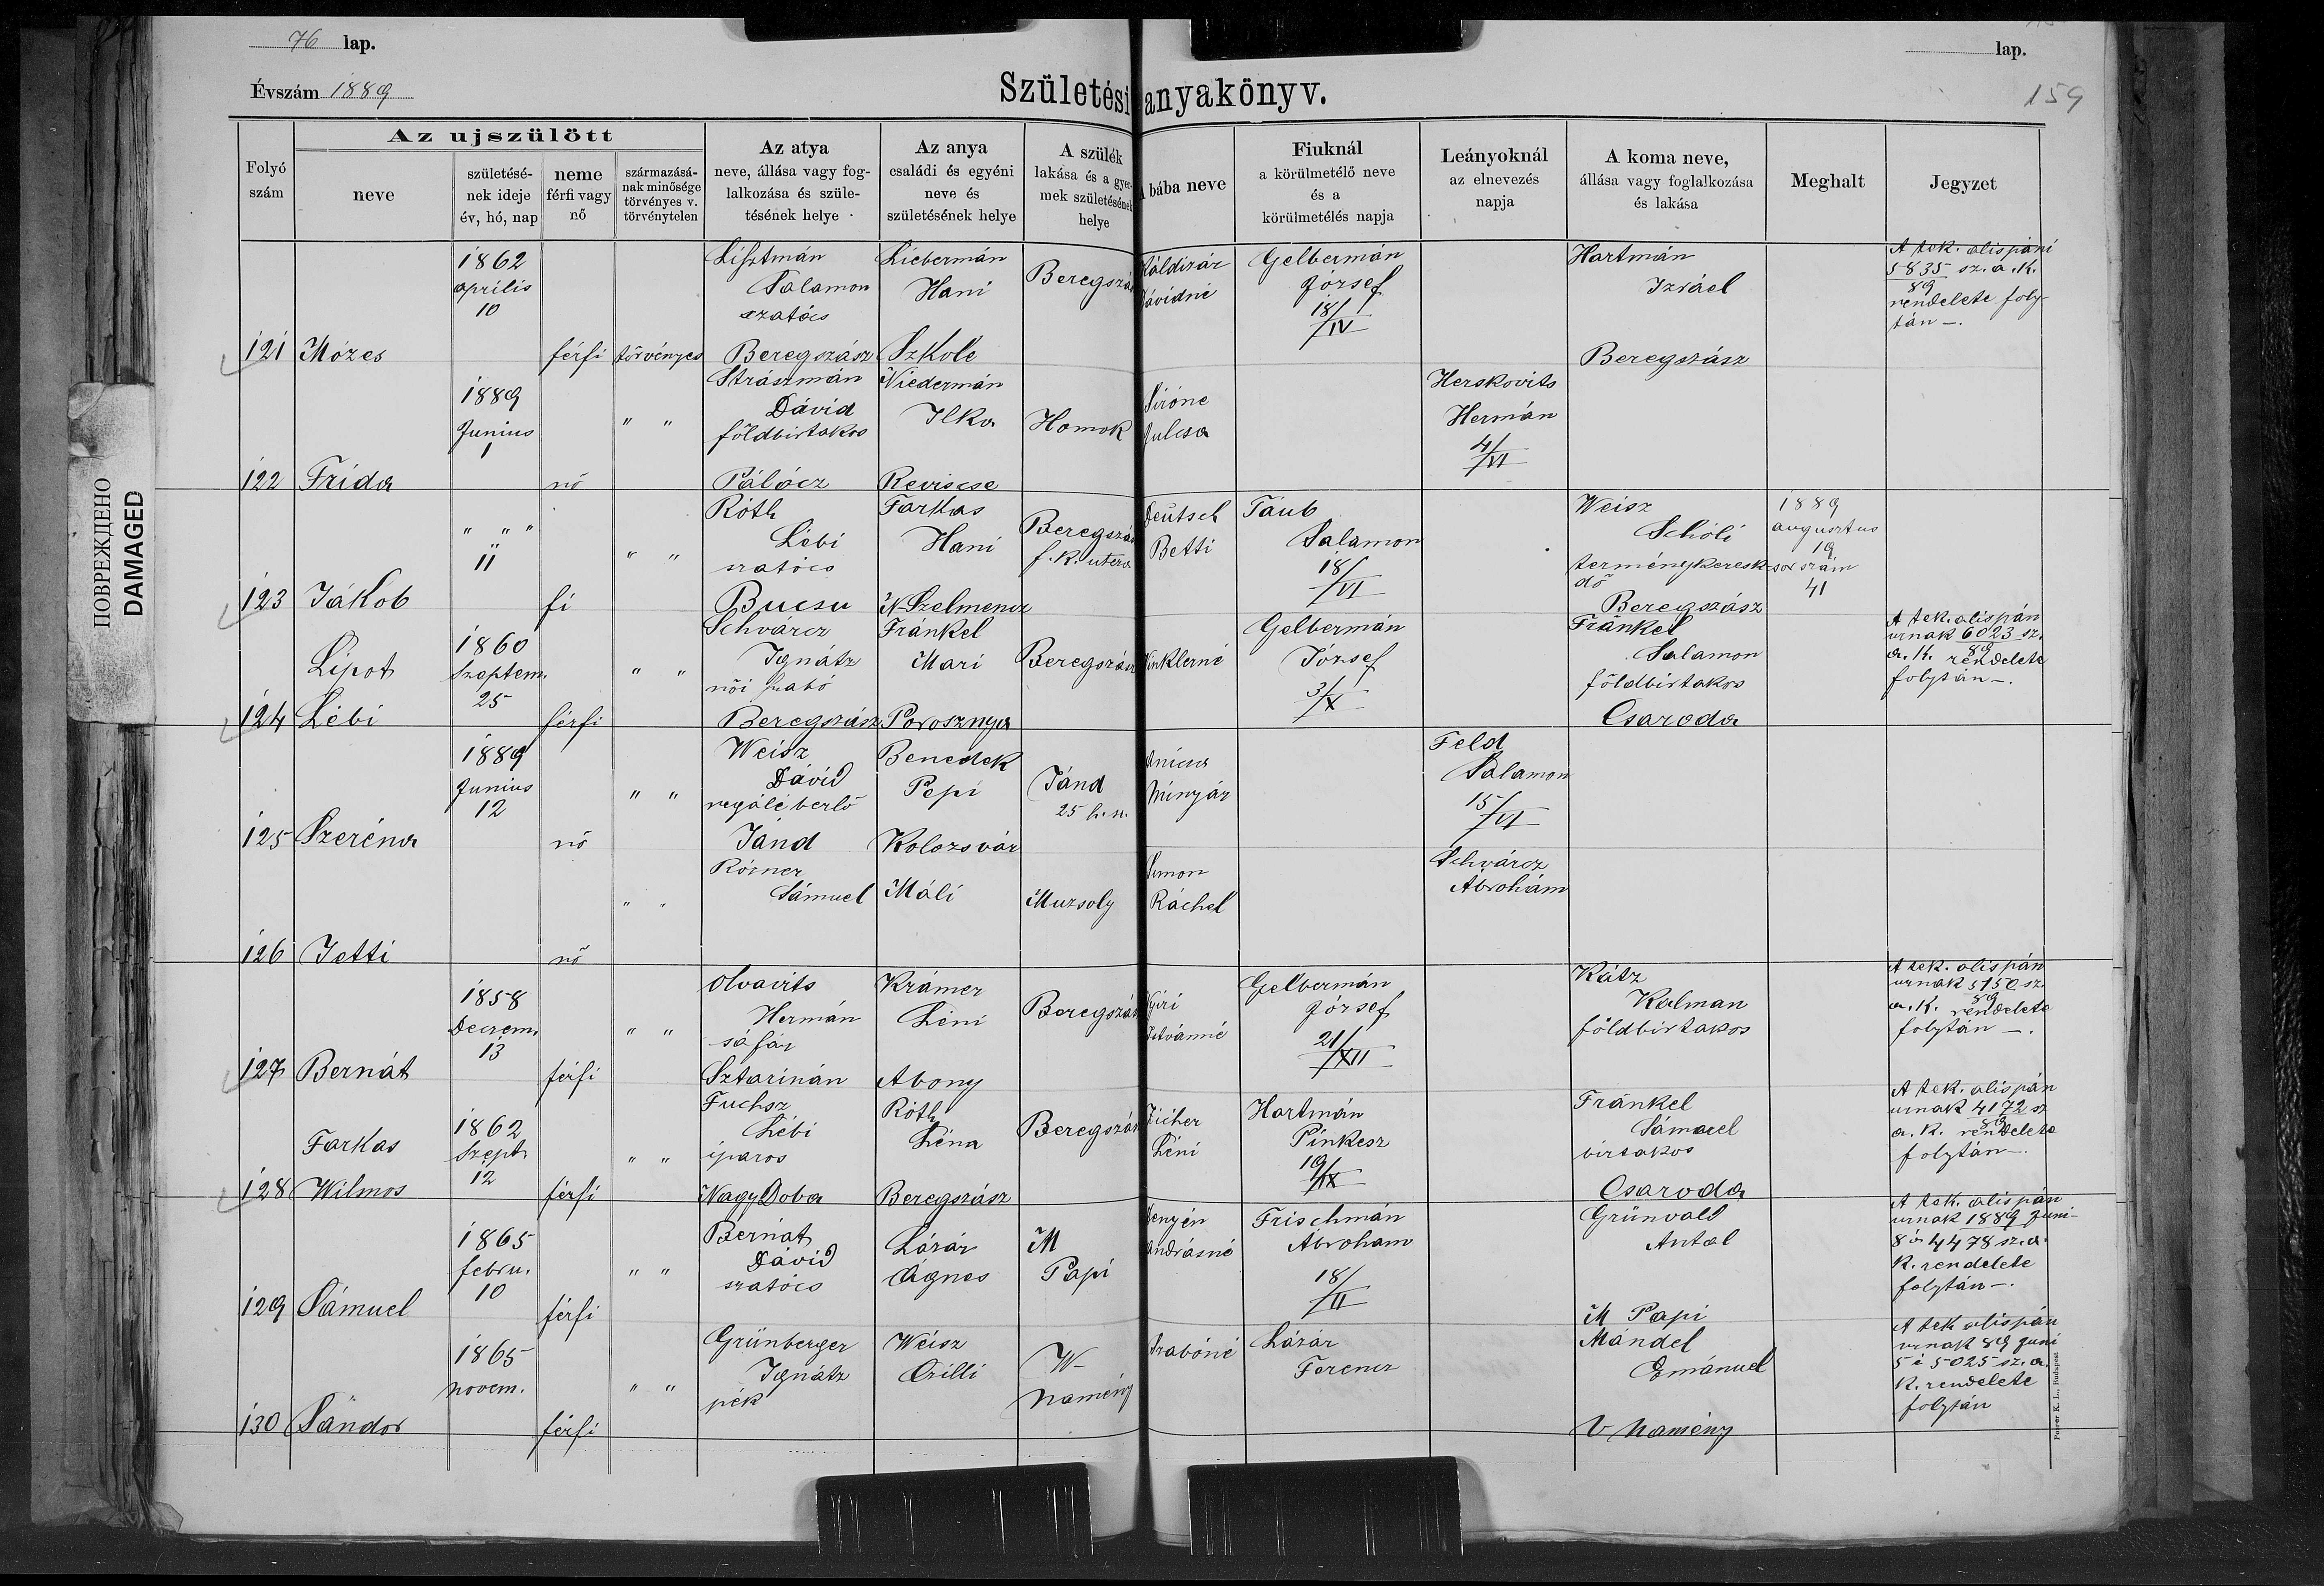 76 lap.
lap.
Évszám 1889
Születési anyakönyv.
159
Folyó szám
Az ujszülött
neve
születésé-
nek ideje
év, hó, nap
neme
férfi vagy
nő
származásá-
nak minősége
törvényes v.
törvénytelen
Az atya
neve, állása vagy fog-
lalkozása és szüle-
tésének helye
Az anya
családi és egyéni
neve és
születésének helye
A szülék
lakása és a gyer-
mek születésének
helye
A bába neve
Fiuknál
a körülmetélő neve
és a
körülmetélés napja
Leányoknál
az elnevezés
napja
A koma neve,
állása vagy foglalkozása
és lakása
Meghalt
Jegyzet
121 Mózes
1862
április
10
férfi törvényes
Salamon
szatócs
Beregszász
Liebermán
Hani
Szkolé
Beregszá
Dávidné
Gelbermán
József
18/IV
Hartmán
Izráel
Beregszász
A tek. alispáni
5835 sz. a. k.
89
rendelete foly-
tán -.
122 Frida
1889
Junius
1
nő
" "
Strászmán
Dávid
földbirtokos
Pálócz
Niedermán
Ilka
Reviscse
Homok
Julcsa
Herskovits
Hermán
4/VI
123 Jákob
" " "
11
fi
" "
Róth
Lébi
szatócs
Bucsu
Farkas
Hani
N-Szelmencz
Beregszá
f. k. utcza
Deutsch
Betti
Táub
Salamon
18/VI
Weisz
Schóli
terménykeresk-
dő
Beregszász
1889
augusztus
19
sor szám
41
124 Lipot
Lébi
1860
Szeptem.
25
férfi
" "
Schvárcz
Ignátz
női szabó
Beregszász
Fránkel
Mari
Porosznya
Beregszász
Winklerné
Gelbermán
József
3/X
Fränkel
Salamon
földbirtokos
Csaroda
A tek. alispán
urnak 6023 sz.
89
a. k. rendelete
folytán -.
125 Szeréna
1889
Junius
12
nő
" "
Weisz
Dávid
regále bérlő
Jánd
Benedek
Pepi
Kolozsvár
Jánd
25 h. sz.
Feld
Salamon
15/VI
126 Jetti
nő
" "
Sámuel
Máli
Muzsoly
Simon
Ráchel
Schvárcz
Ábrohám
127 Bernát
1858
Deczem.
13
férfi
" "
Hermán
sáfár
Krámer
Léni
Abony
Beregszá
Istvánné
Gelbermán
József
21/XII
Kátz
Kalman
földbirtokos
A tek. alispán
urnak 5150 sz
89
a. k. rendelete
folytán -.
128 Farkas
Wilmos
1862
Szept.
12
férfi
" "
Fuchsz
Lébi
iparos
Nagy Doba
Róth
Léna
Beregszász
Beregszá
Léni
Hartmán
Pinkesz
19/IX
Fránkel
Sámuel
birtokos
Csaroda
A tek. alispán
urnak 4172 sz
89
a. k. rendelete
folytán -.
129 Sámuel
1865
febru.
10
férfi
" "
Bernát
Dávid
szatócs
Lázár
Ágnes
M
Papi
Andrásné
Frischmán
Ábroham
18/II
Grünvald
Antal
M Papi
A tek. alispán
urnak 1889 Juni-
8 án 4478 sz. a.
k. rendelete
folytán -.
130 Sándor
1865
novem.
férfi
" "
Grünberger
Ignátz
pék
Weisz
Czilli
W-
Namény
Szabóné
Lázár
Ferencz
Mandel
Emánuel
V Namény
A tek alispán
urnak 89 Juni
5 i 5025 sz. a.
k. rendelete
folytán
ПОВРЕЖДЕНО
DAMAGED